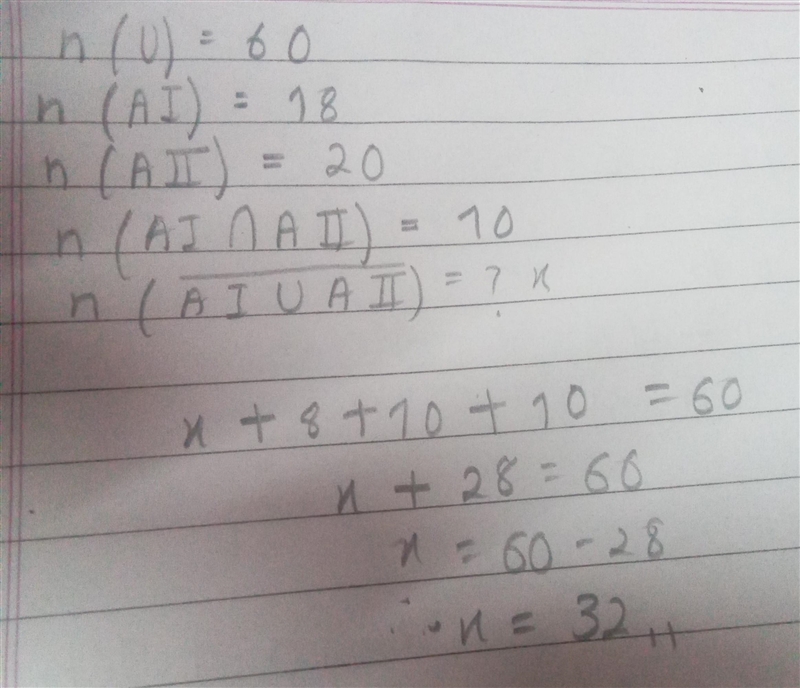 n (U) = 60
n (AI) = 18
n (AII) = 20
n (AI ∩ AII) = 10
n (A̅ ̅I̅ ̅U̅ ̅A̅ ̅I̅I̅) = ? x
x + 8 + 10 + 10 = 60
x + 28 = 60
x = 60 - 28
∴ x = 32,,